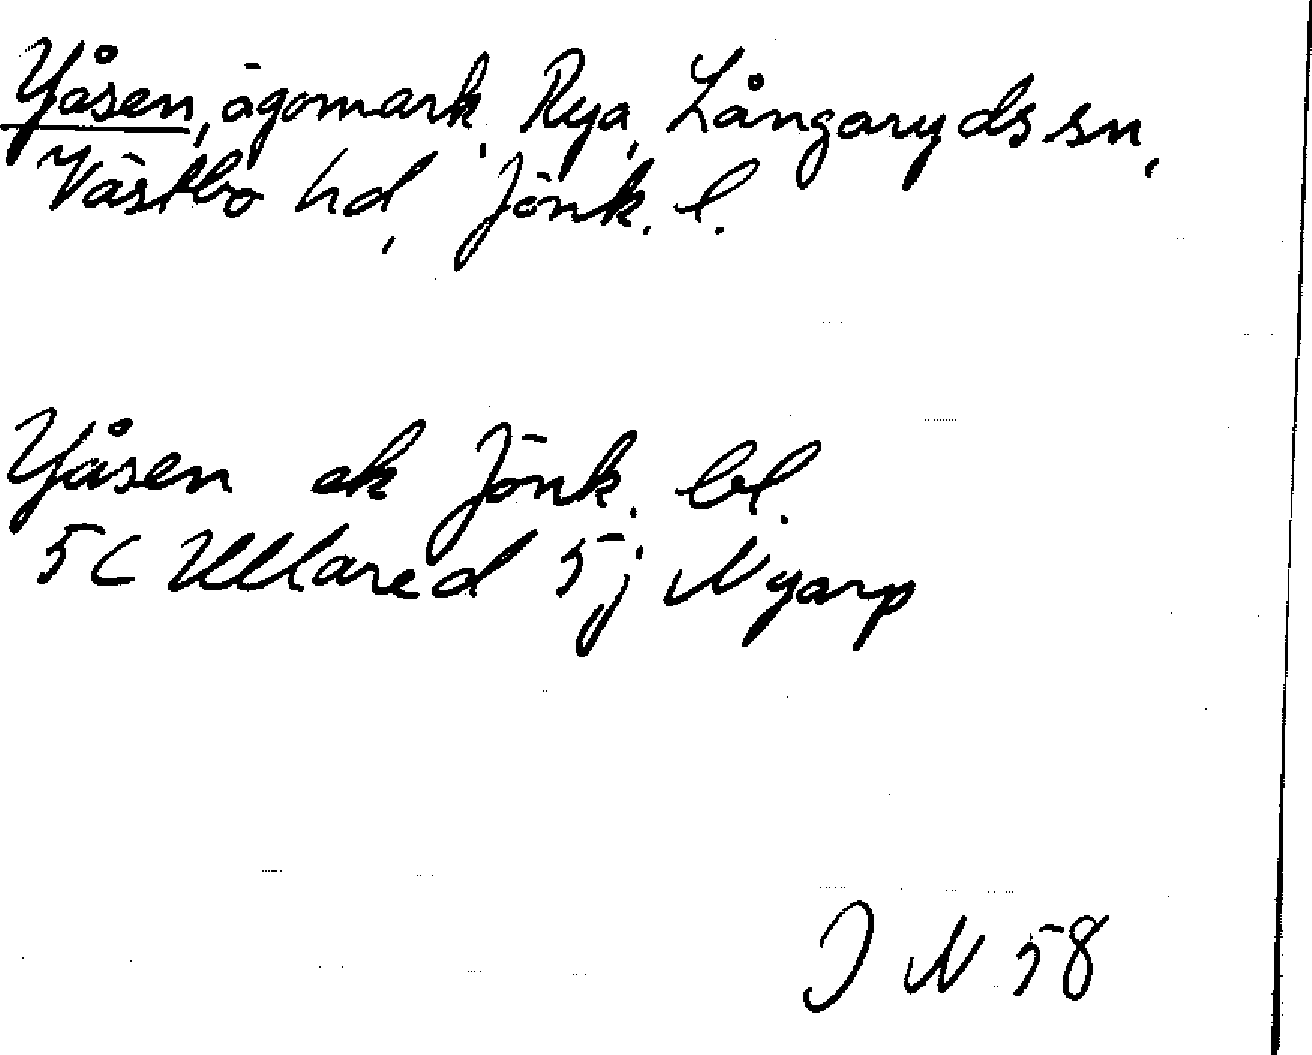 Yåsen, ägomark, Rya, Långaryds sn,
Västbo hd, Jönk. l.
Yåsen ek Jönk. bl.
5C Ullared 5j Nyarp
J N 58